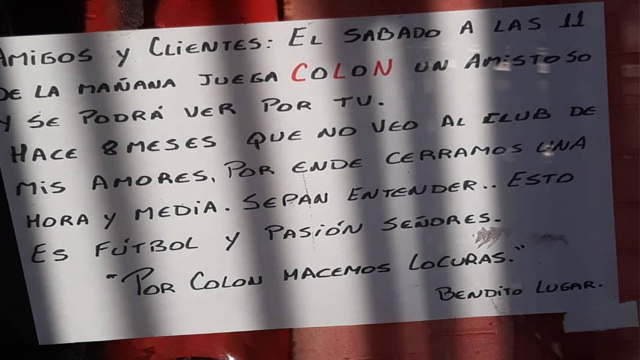 AMIGOS Y CLIENTES: EL SABADO A LAS 11
DE LA MAÑANA JUEGA COLON UN AMISTOSO
Y SE PODRÁ VER POR TV.
HACE 8 MESES QUE NO VEO AL CLUB DE
MIS AMORES, POR ENDE CERRAMOS UNA
HORA Y MEDIA. SEPAN ENTENDER.. ESTO
ES FÚTBOL Y PASIÓN SEÑORES.
"POR COLON HACEMOS LOCURAS."
BENDITO LUGAR.